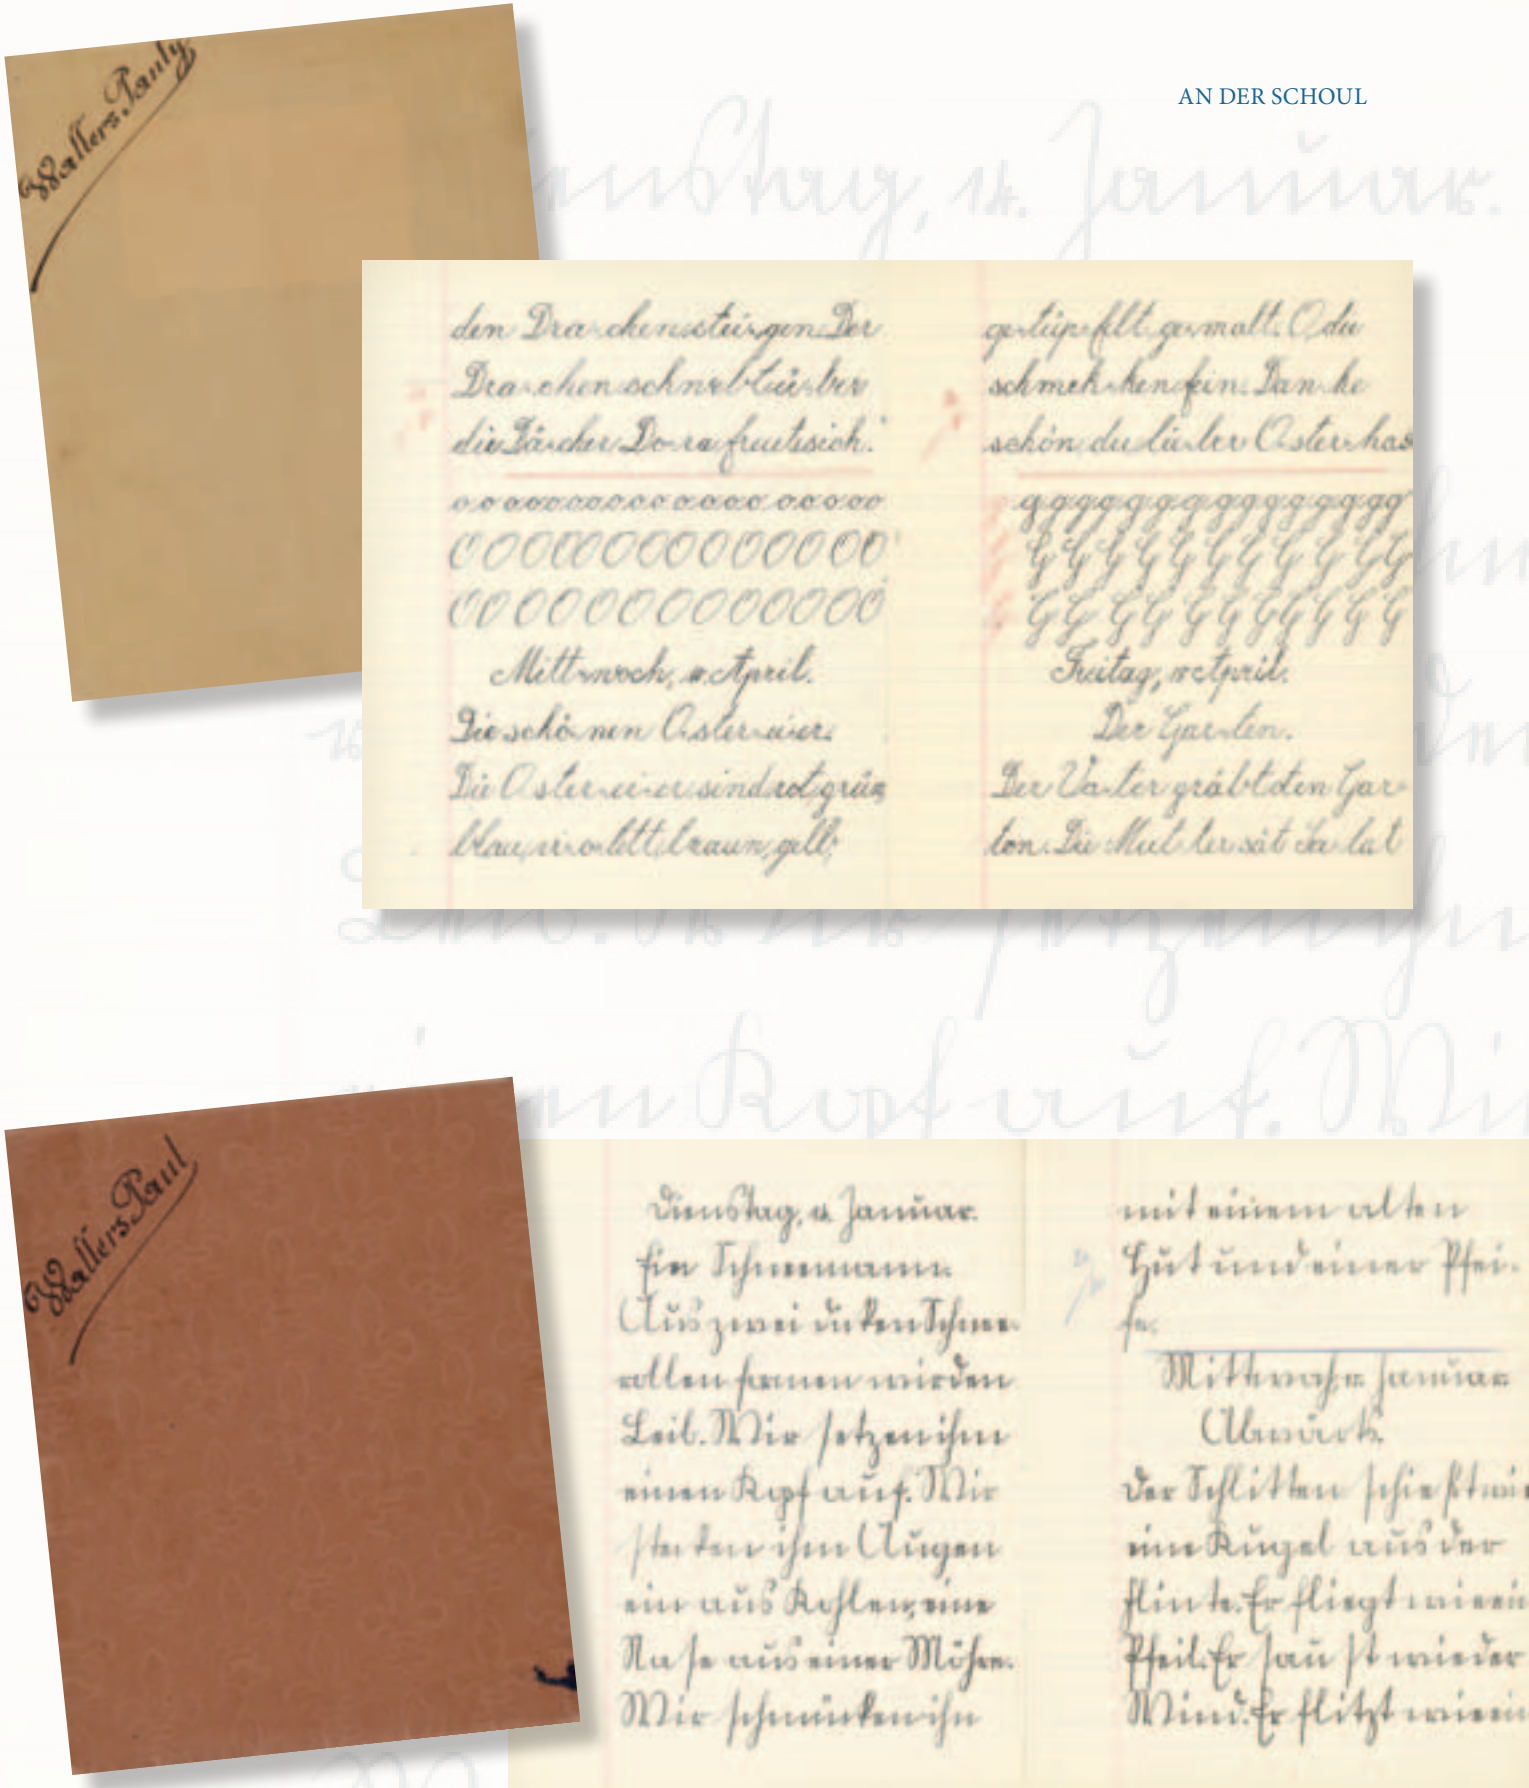 AN DER SCHOUL
Wallers Pauly
den Dra-chen stei-gen. Der
Dra-chen schnebt ü-ber
die Dä-cher Do-ra freut sich.
o o o o o o o o o o o o o o o o o o o
O O O O O O O O O O O O O O
O O O O O O O O O O O O O
Mitt-woch, April.
Die schö-nen Oster-eier.
Die Oster-ei-er sind rot grün
blau, vi-olett, braun, gelb,
ge-tüp-felt ge-malt. O du
schmek-ken fein. Dan-ke
schön du lie-ber Oster-has
g g g g g g g g g g g g g g g g
G G G G G G G G G G G G
G G G G G G G G G G G G
Freitag, April.
Der Gar-ten.
Der Va-ter gräbt den Gar-
ten. Die Mut-ter sät Sa-lat
Wallers Paul
Dienstag, Januar.
Ein Schneemann.
Aus zwei dicken Schnee-
rollen formen wir den
Leib. Wir setzen ihm
einen Kopf auf. Wir
stecken ihm Augen
ein aus Kohlen, eine
Nase aus einer Möhre.
Wir schmücken ihn
mit einem alten
Hut und einer Pfei-
fe.
Mittwoch, Januar
Abwärts.
Der Schlitten schießt wie
eine Kugel aus der
Flinte. Er fliegt wie ein
Pfeil. Er saust wie der
Wind. Er flitzt wie ein